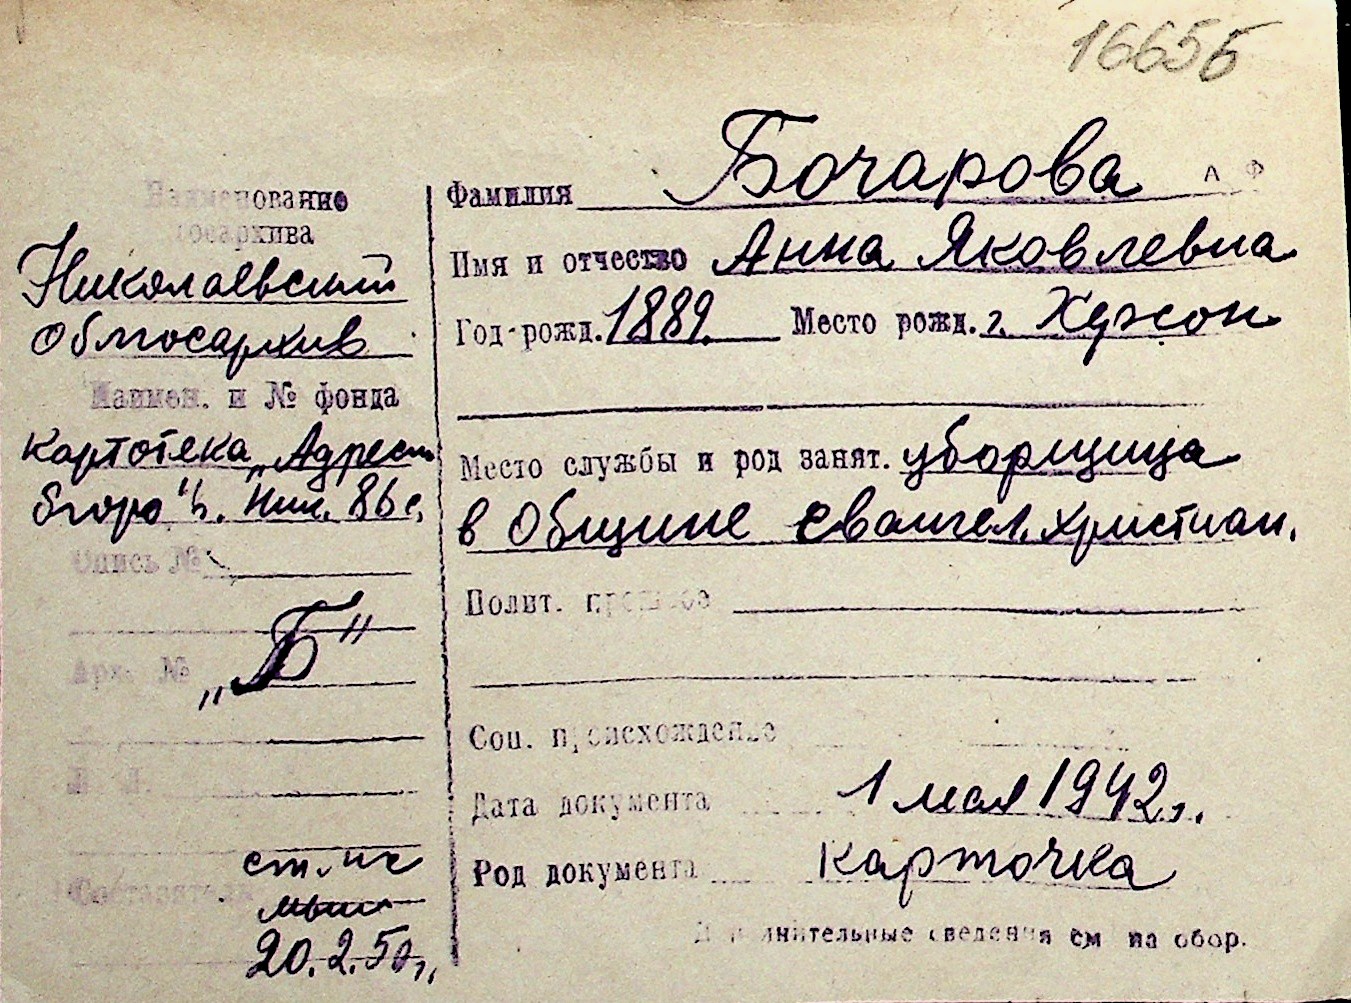 16655
Наименование
госархива
Николаевский
облгосархив
Наимен. и № фонда
картотека „Адресн.
бюро" г. Ник. 86 с,
Опись №
Арх. №
„Б"
Л. Л.
Составитель
ст. ис
20.2.50 г.
Фамилия Бочарова А Ф
Имя и отчество Анна Яковлевна
Год рожд. 1889. Место рожд. г. Херсон
Место службы и род занят. уборщица
в Общине евангел. христиан.
Полит. прошлое
Соц. происхождение
Дата документа 1 мая 1942 г.
Род документа карточка
Дополнительные сведения см на обор.